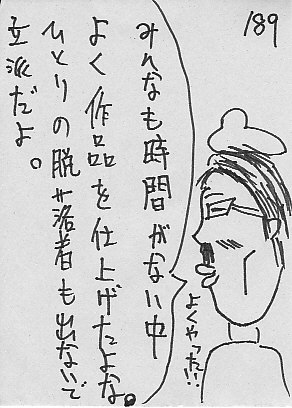 189
みんなも時間がない中
よく作品を仕上げたよな。
ひとりの脱落者も出ないで
立派だよ。
よくやった!!